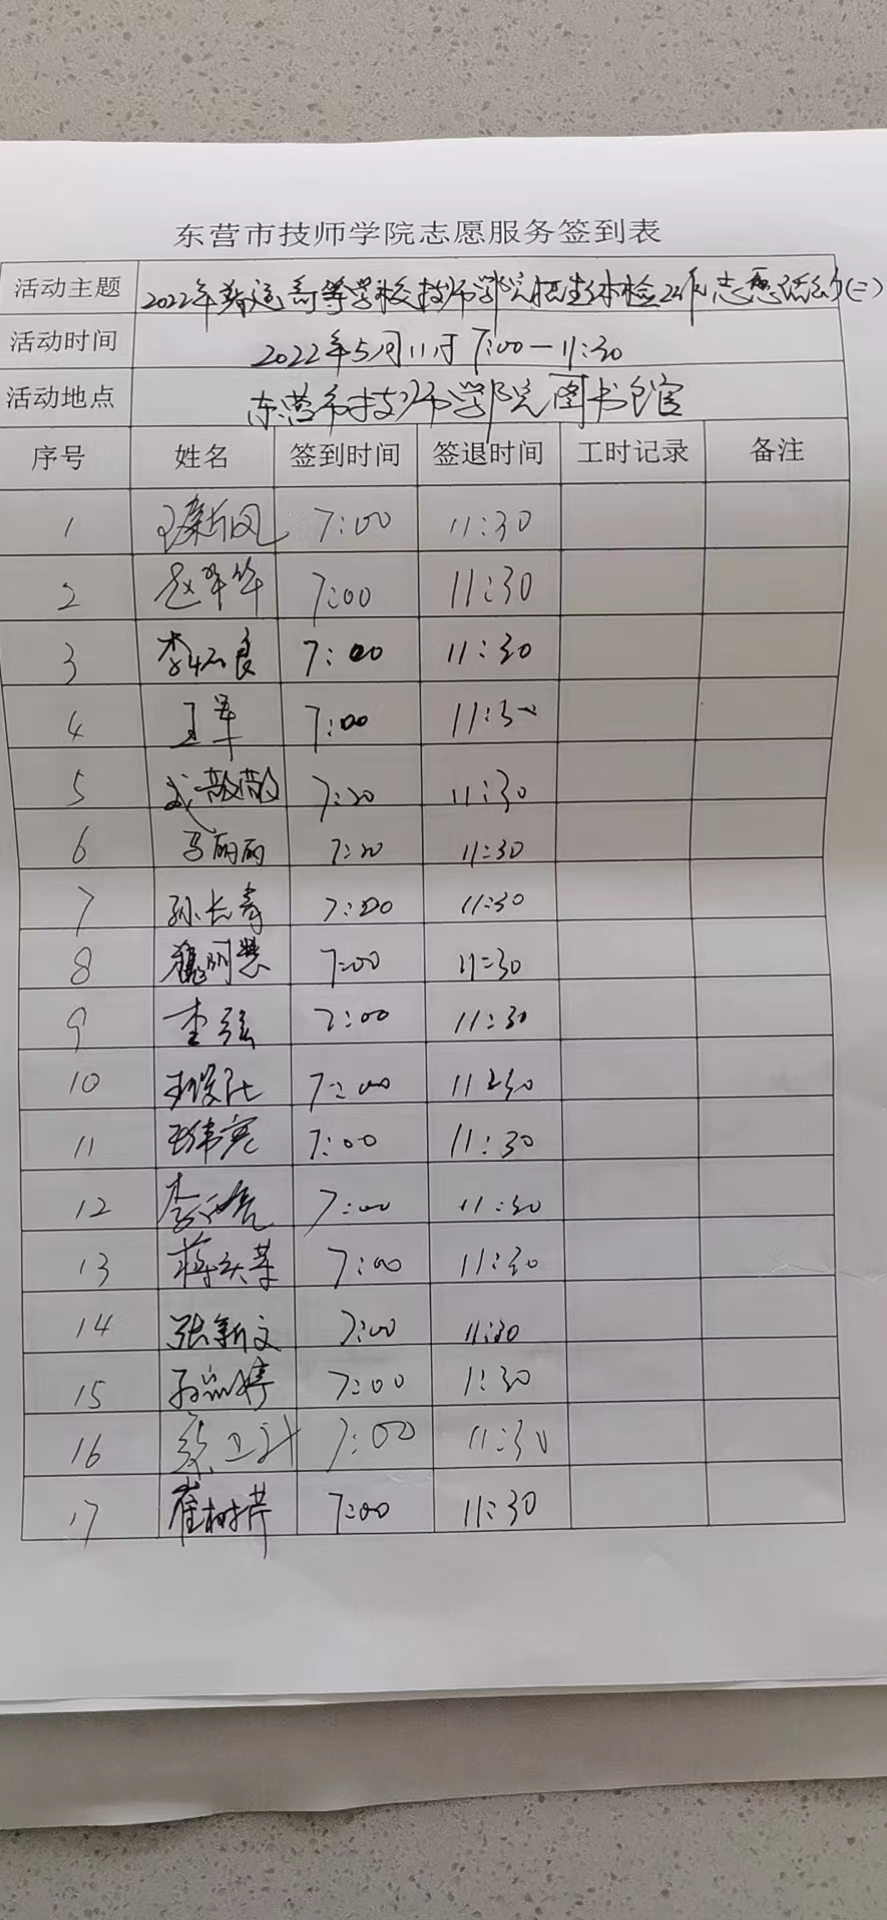 东营市技师学院志愿服务签到表
活动主题 2022年普通高等学校技师学院招生体检工作志愿活动(二)
活动时间 2022年5月11日 7:00—11:30
活动地点 东营市技师学院图书馆
序号 姓名 签到时间 签退时间 工时记录 备注
1 7:00 11:30
2 赵军华 7:00 11:30
3 7:00 11:30
4 王军 7:00 11:30
5 武敬敬 7:20 11:30
6 马丽丽 7:20 11:30
7 孙长青 7:00 11:30
8 魏明慧 7:00 11:30
9 李弦 7:00 11:30
10 7:00 11:30
11 王伟亮 7:00 11:30
12 7:00 11:30
13 7:00 11:30
14 张新文 7:00 11:30
15 7:00 1:30
16 7:00 11:30
17 崔树芹 7:00 11:30